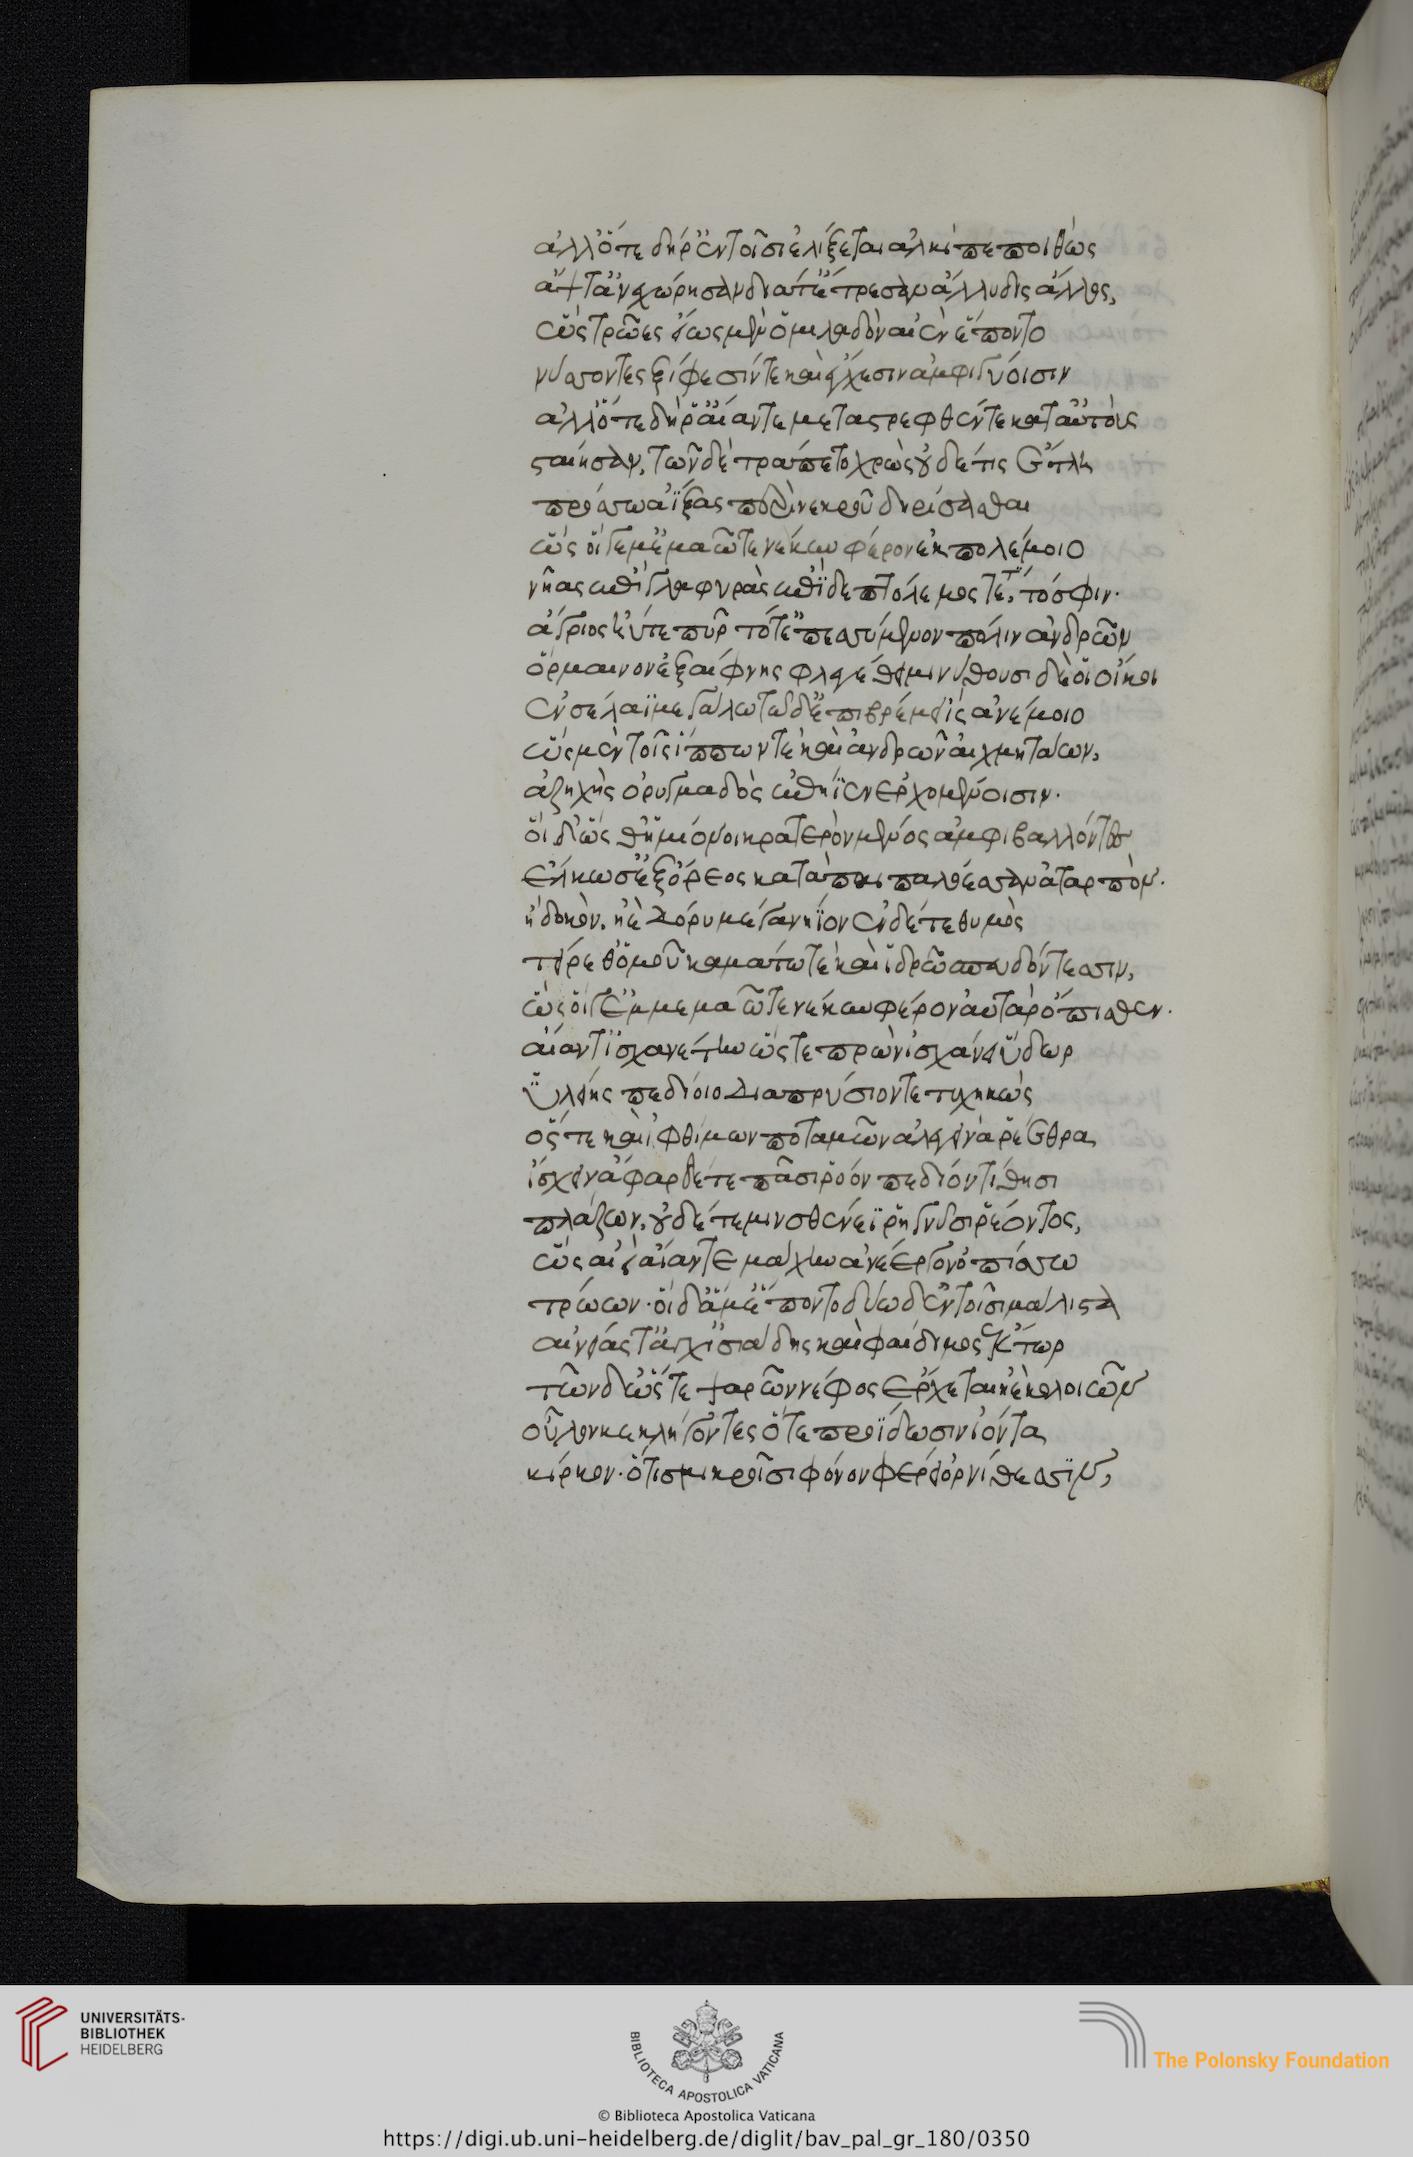 ἀλλ' ὅτε δή ῥ' ἐν τοῖσι ἑλίξεται ἀλκὶ πεποιθὼς
ἄψ τ' ἀνχώρησαν διά τ' ἔτρεσαν ἄλλυδις ἄλλος,
ὣς τρῶες εἵως μὲν ὁμιλαδὸν αἰὲν ἕποντο
νύσσοντες ξίφεσίν τε καὶ ἔγχεσιν ἀμφιγύοισιν
ἀλλ' ὅτε δή ῥ' αἴαντε μεταστρεφθέντε κατ' αὐτοὺς
σταίησαν, τῶν δὲ τράπετο χρὼς οὐδέ τις ἔτλη
πρόσσω ἀΐξας περὶ νεκροῦ δηρίσασθαι
ὣς οἵ γε μεμαῶτε νέκυν φέρον ἐκ πολέμοιο
νῆας ἐπὶ γλαφυρὰς ἐπὶ δὲ πτόλεμος τέτατό σφιν·
ἄγριος ἠΰτε πῦρ τό τ' ἐπεσσύμενον πόλιν ἀνδρῶν
ὄρμαινον ἐξαίφνης φλεγέθει μινύθουσι δὲ οἶκοι
ἐν σέλαϊ μεγάλω τὸ δ' ἐπιβρέμει ἲς ἀνέμοιο
ὣς μὲν τοῖς ἵππων τε καὶ ἀνδρῶν αἰχμητάων,
ἀζηχὴς ὀρυγμαδὸς ἐπήϊεν ἐρχομένοισιν·
οἱ δ' ὥς θ' ἡμίονοι κρατερὸν μένος ἀμφιβαλλόντες
ἕλκωσ' ἐξ ὄρεος κατὰ παιπαλόεσσαν ἀταρπὸν·
ἢ δοκὸν, ἠὲ δόρυ μέγα νήϊον ἐν δέ τε θυμὸς
τείρεθ' ὁμοῦ καμάτω τε καὶ ἱδρῶ σπευδόντεσσιν,
ὣς οἵ γ' ἐμμεμαῶτε νέκυν φέρον αὐτὰρ ὄπισθεν·
αἴαντ' ἰσχανέτην ὥς τε πρὼν ἰσχάνει ὕδωρ
ὑλήεις πεδίοιο διαπρύσιον τετιχηκὼς
ὅς τε καὶ ἰφθίμων ποταμῶν ἀλεγεινὰ ῥέεθρα
ἴσχει ἄφαρ δέ τε πᾶσι ῥόον πεδίον τίθησι
πλάζων, οὐδέ τε μιν σθένεϊ ῥηγνῦσι ῥέοντος,
ὣς αἰεὶ αἴαντε μάχην ἀνέεργον ὀπίσσω
τρώων· οἱ δ' ἅμ' ἕποντο δύω δ' ἐν τοῖσι μάλιστα
αἰνείας τ' ἀγχισιάδης καὶ φαίδιμος ἕκτωρ
τῶν δ' ὥς τε ψαρῶν νέφος ἔρχεται ἠὲ κολοιῶν
οὖλον κεκλήγοντες ὅτε προΐδωσιν ἰόντα
κίρκον· ὅ τι σμικροῖσι φόνον φέρει ὀρνίθεσσιν,
UNIVERSITÄTS-
BIBLIOTHEK
HEIDELBERG
BIBLIOTECA APOSTOLICA VATICANA
The Polonsky Foundation
© Biblioteca Apostolica Vaticana
https://digi.ub.uni-heidelberg.de/diglit/bav_pal_gr_180/0350